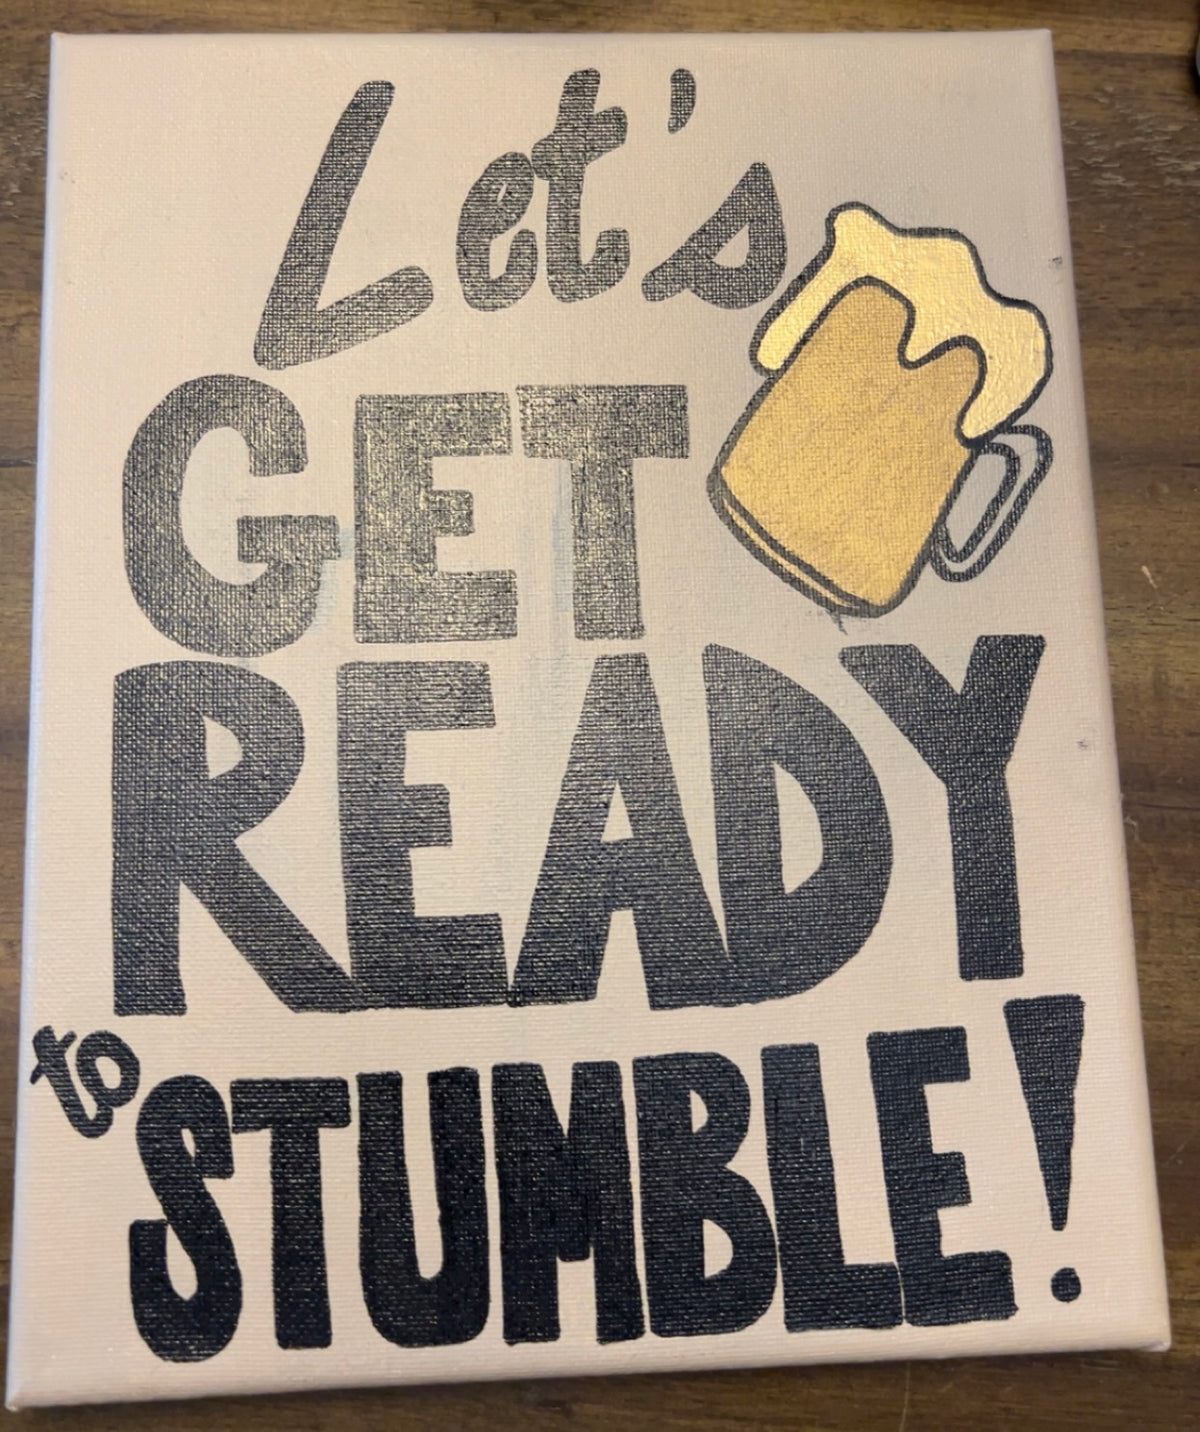 Let's
GET
READY
to
STUMBLE!